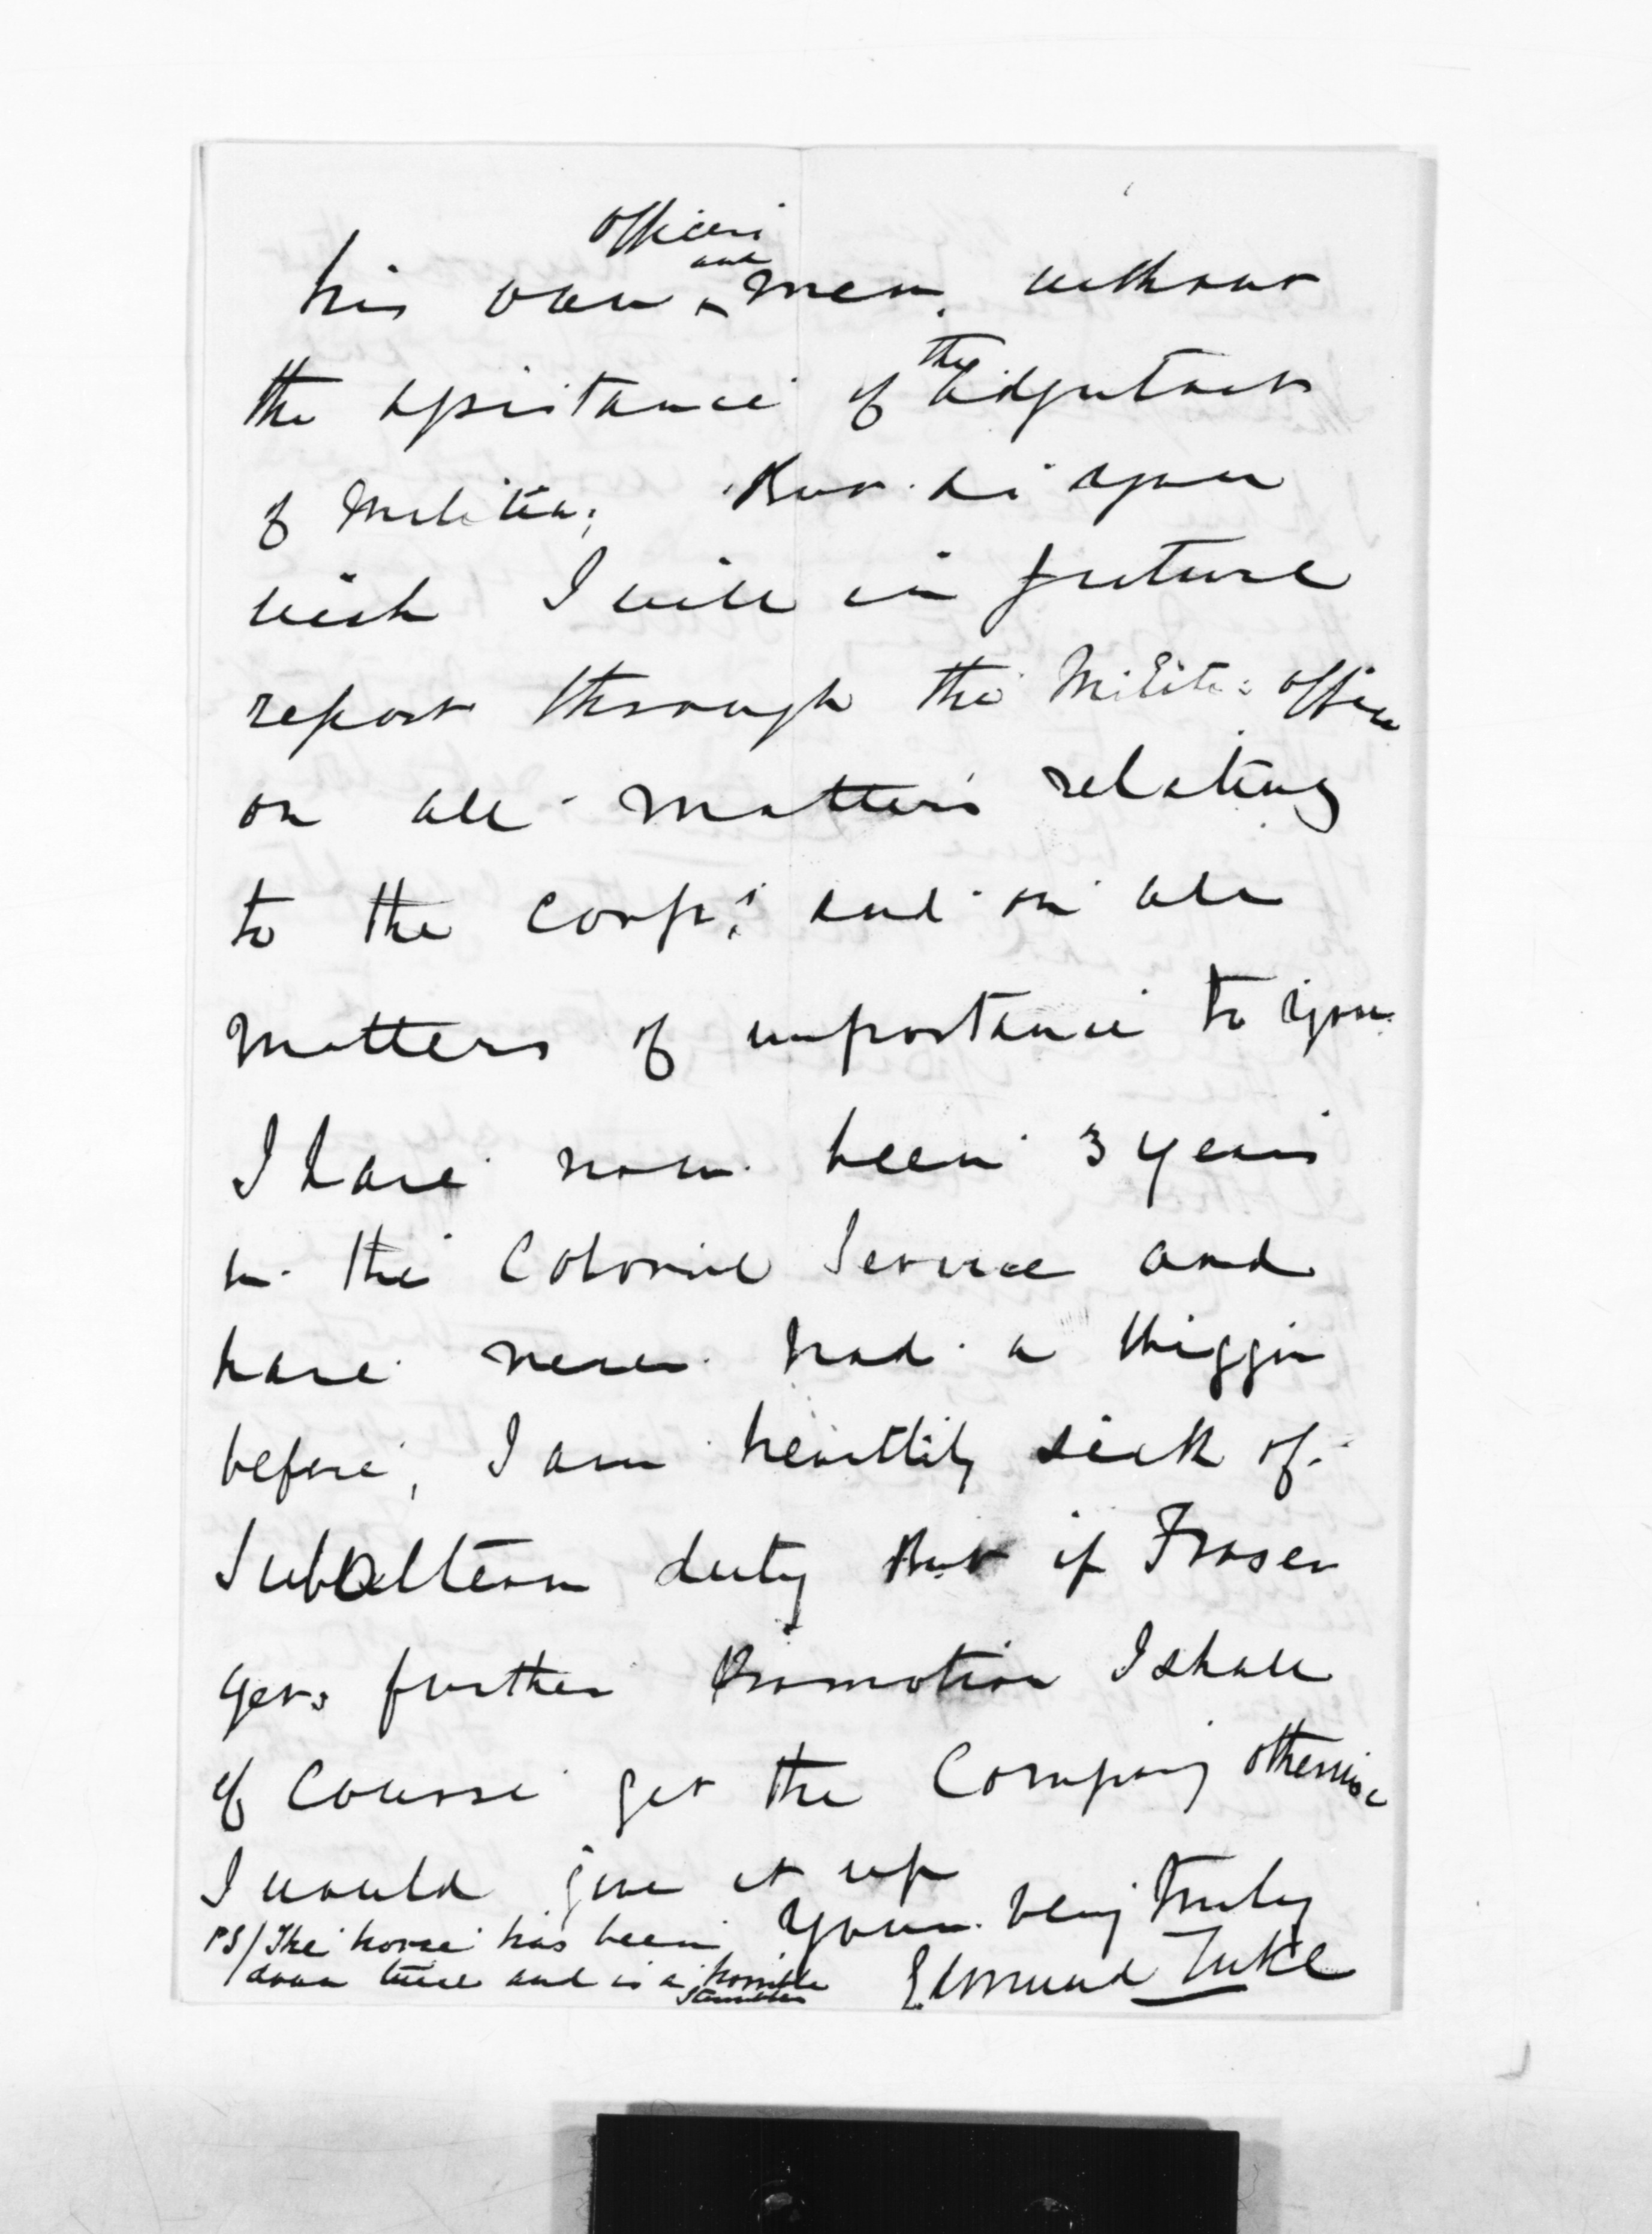 his own officers and men, without
the assistance of the Adjutant
of Militia; But as you
wish I will in future
report through the Militia office
on all matters relating
to the Corps; and on all
matters of importance to you.
I have now been 3 years
in the Colonial Service and
have never had a wiggin
before, I am heartily sick of
Subaltern duty But if Fraser
gets further Promotion I shall
of Course get the Company otherwise
I would give it up
Yours very truly
Edmund Tuke
PS/ The horse has been
down twice and is a horrible
stumbler